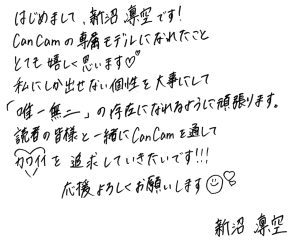 はじめまして、新沼凛空です!
CanCamの専属モデルになれたこと
とても嬉しく思います♡
私にしか出せない個性を大事にして
「唯一無二」の存在になれるように頑張ります。
読者の皆様と一緒にCanCamを通して
カワイイを追求していきたいです!!!
応援よろしくお願いします☺♡
新沼 凛空